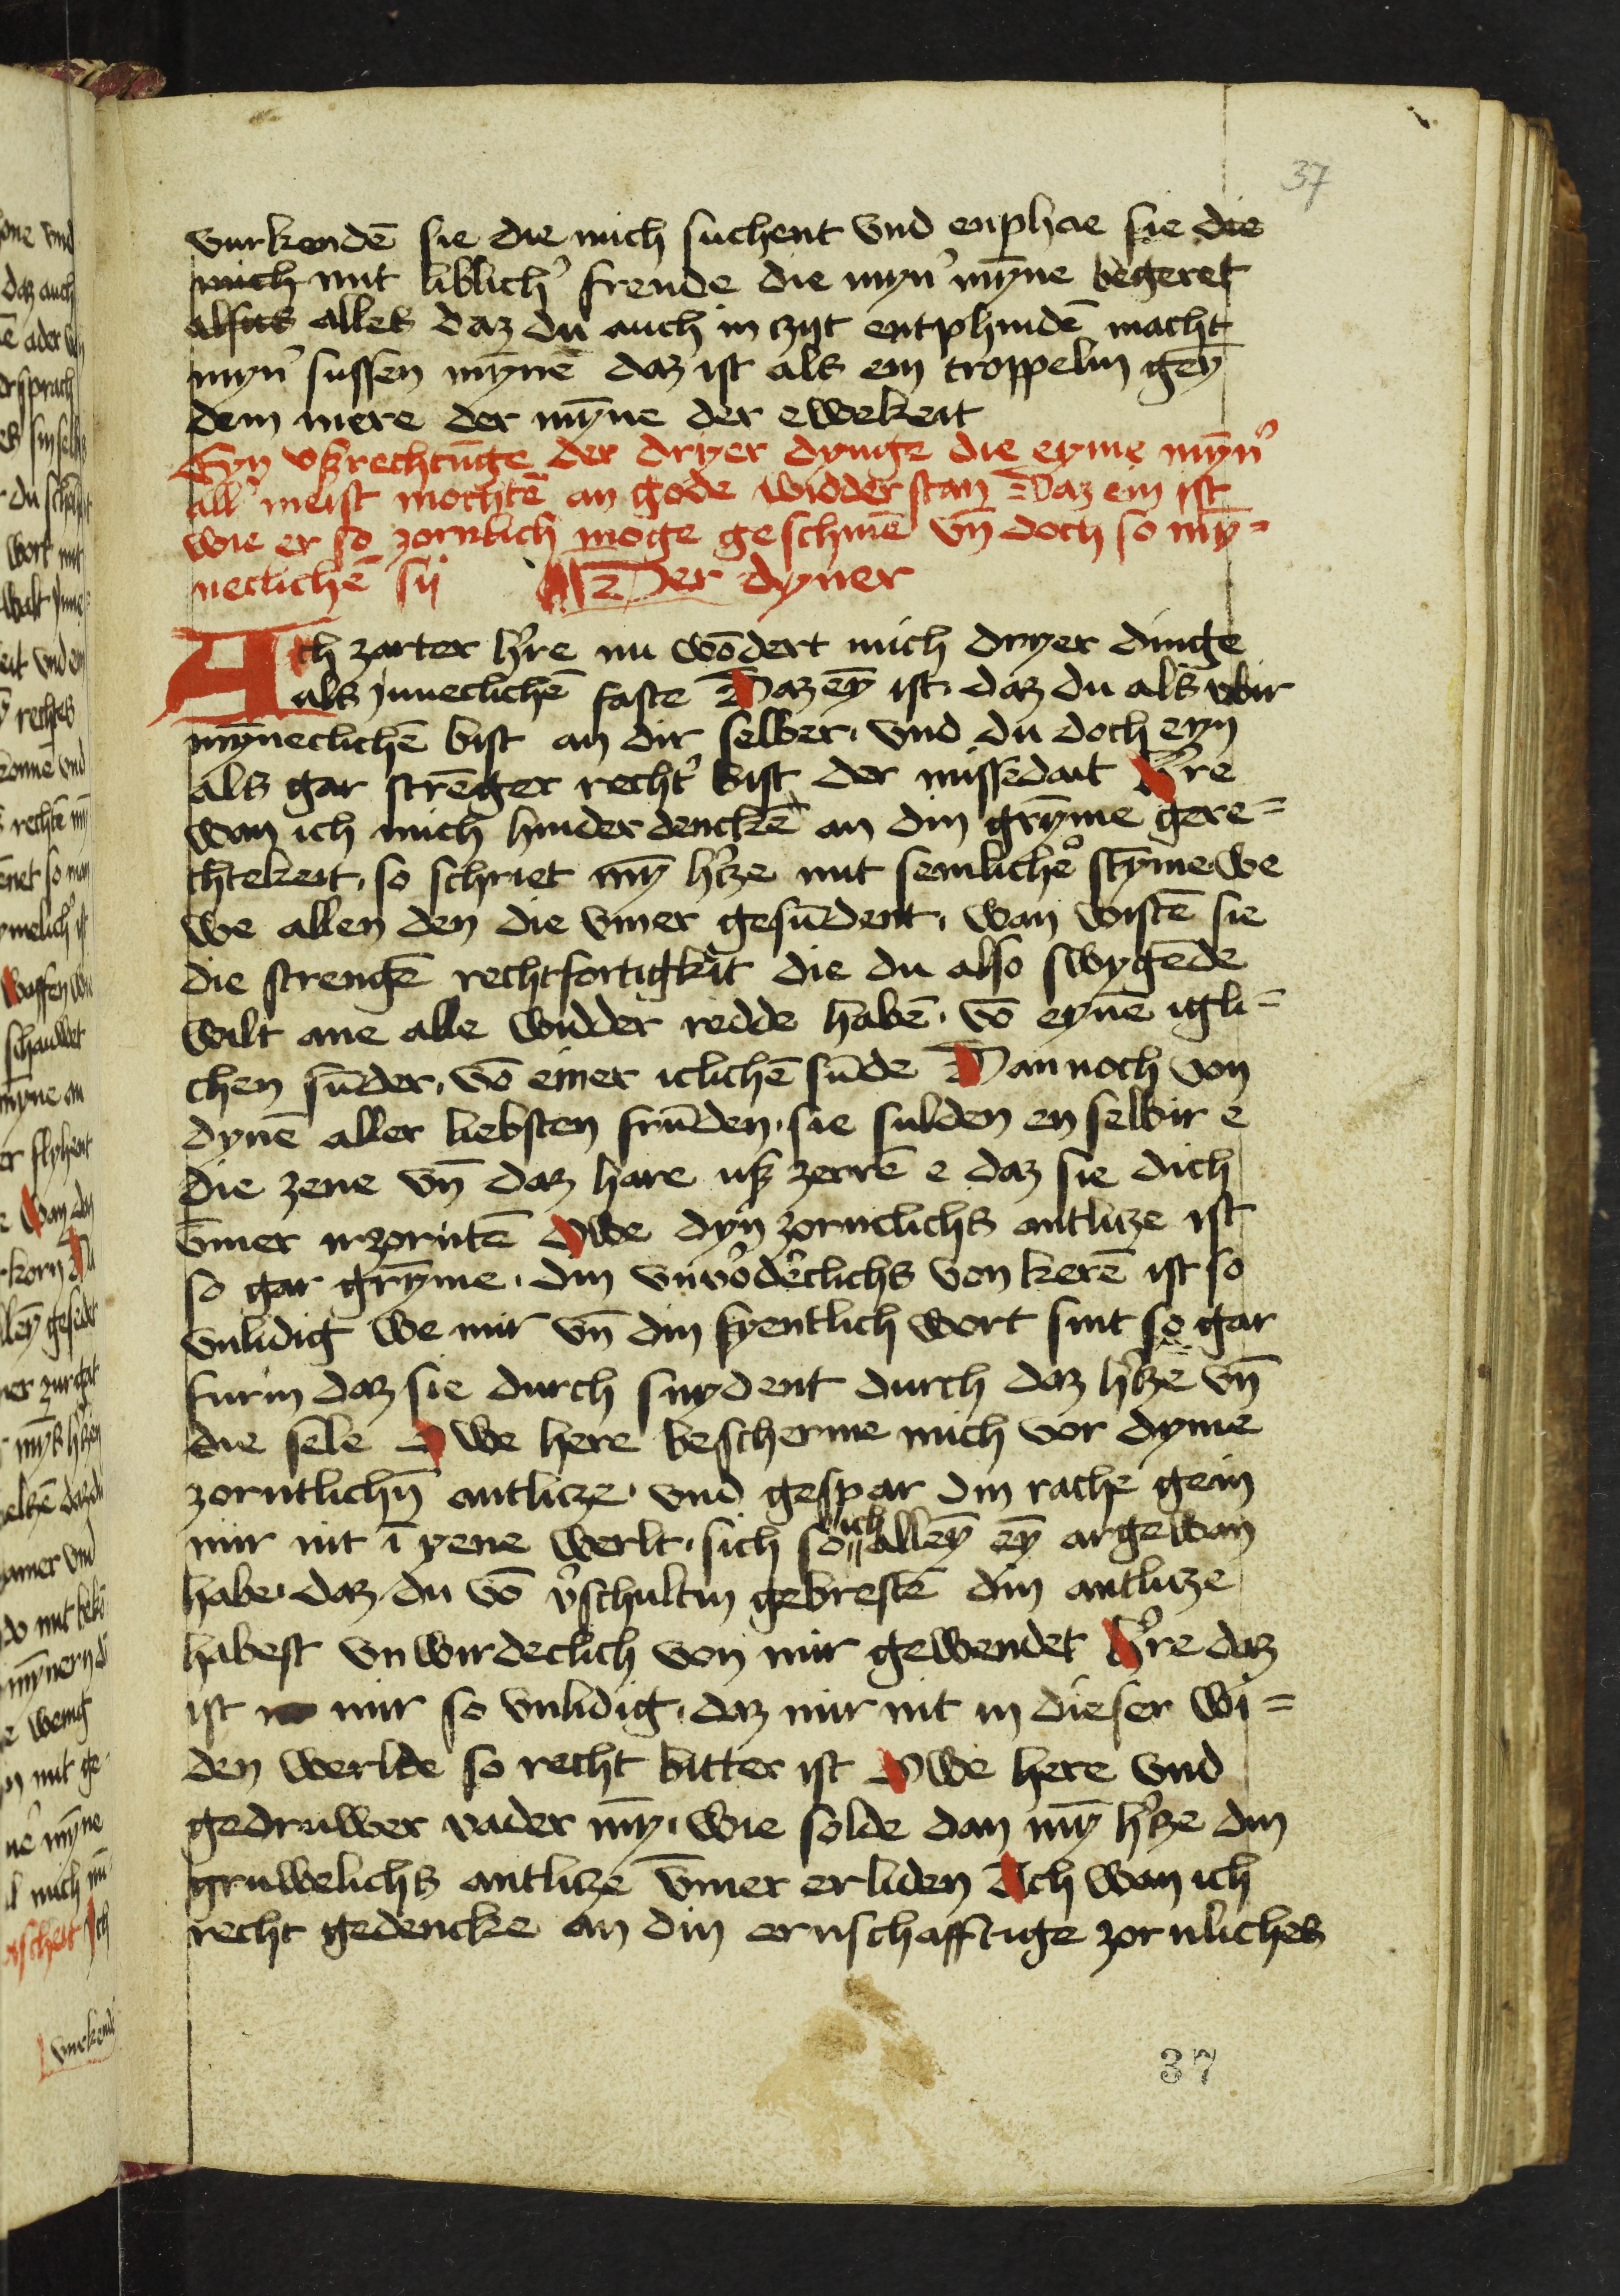 37
vurkondē sie die mich suchent vnd enphae sie die
mich mit liblich᾽ freude die myn᾽ mȳne begeret
alsus alles daz du auch in zyt entphindē macht
myn᾽ sussen mynnē daz ist als ein troppelin geȳ
dem mere der mȳne der ewekeit
Eyn vßrechtūge der dryer dynge die eyme mȳn᾽
all᾽ meist mochtē an gode widderstan Daz ein ist
wie er so zornlich moge geschinē vn̄ doch so mȳ=
neclichē sij Der dyner
Ach zarter h᾽re nu wōdert mich dryer dinge
als jnneclichē faste Daz eȳ ist. daz du als vbir
mȳneclichē bist an dir selber. vnd du doch eyn
als gar strēger recht᾽ bist der missedait H᾽re
wan ich mich hinder denckē an din grȳme gere=
chtekeit. so schriet mȳ h᾽tze mit semlich᾽ stȳme we
we allen den die vmer gesūdent. wan wistē sie
die strengē rechtfortigkeit die du also swygēde
wilt ane alle widder redde habē. vō eynē igli=
chen sūder. vō einer iclichē sūde Dannoch von
dynē aller liebsten frūden. sie sulden en selbir e
die zene vn̄ daz hare uß zerrē e daz sie dich
v̄mer irzorntē Owe dyn zorneclichs antlitze ist
so gar grȳme. din vnw᾽declichs von kerē ist so
vnlidig We mir vn̄ din fyentlich wort sint so gar
furin daz sie durch snydent durch daz h᾽tze vn̄
die sele Owe here bescherme mich vor dyme
zorntlichn̄ antlitze. vnd gespar din rache gein
mir nit ī yene werlt. sich so ich alleȳ eȳ argewan
habe. daz du vō v᾽schultin gebrestē din antlitze
habest vnwirdeclich von mir gewendet H᾽re daz
ist mir so vnlidig. daz mir nit in dieser wi=
den werlde so recht bitter ist Owe here vnd
gedruwer vader mȳ. wie solde dan mȳ h᾽tze din
gruwelichs antlitze v̄mer erliden Ach wan ich
recht gedencke an din ernschafftige zornliches
37